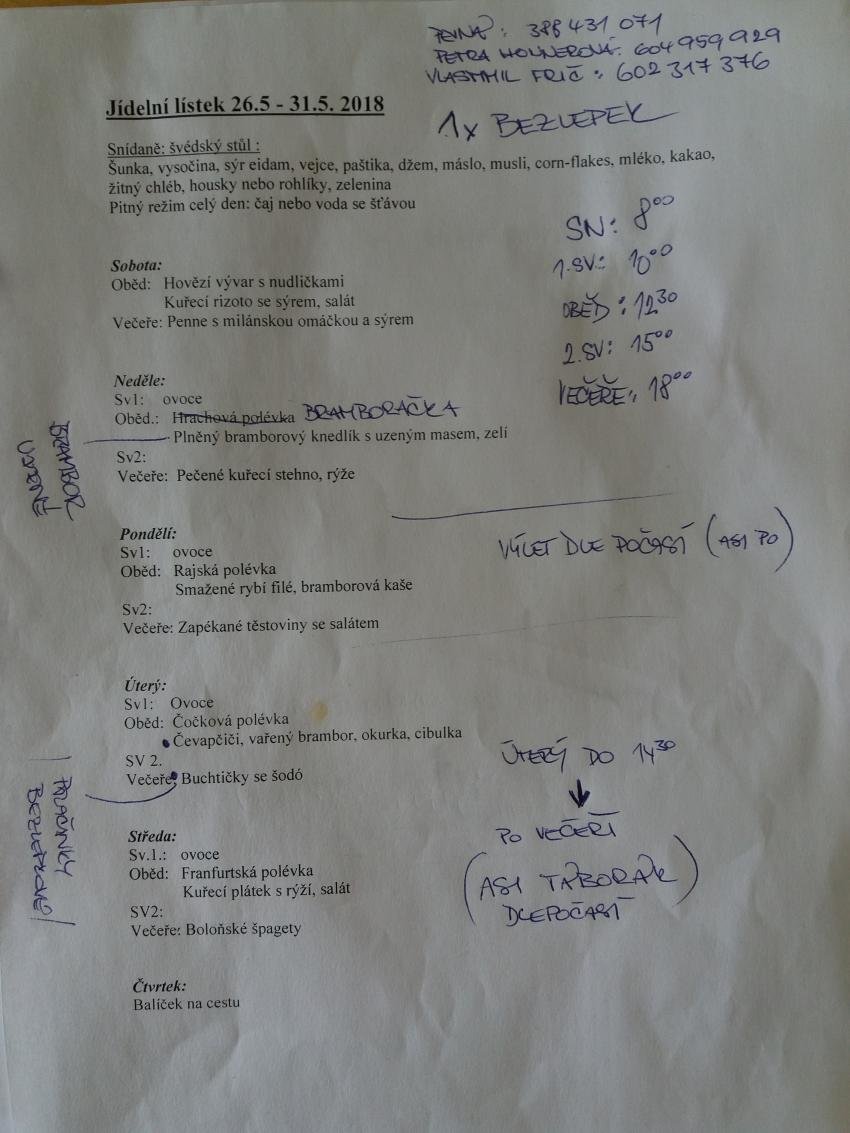 PEVNÁ: 388 431 071
PETRA HOLNEROVÁ: 604 959 929
VLASTIMIL FRIČ: 602 317 376
Jídelní lístek 26.5 - 31.5. 2018
1x BEZLEPEK
Snídaně: švédský stůl :
Šunka, vysočina, sýr eidam, vejce, paštika, džem, máslo, musli, corn-flakes, mléko, kakao,
žitný chléb, housky nebo rohlíky, zelenina
Pitný režim celý den: čaj nebo voda se šťávou
SN: 8⁰⁰
1.SV: 10⁰⁰
OBĚD: 12³⁰
2.SV: 15⁰⁰
VEČEŘE: 18⁰⁰
Sobota:
Oběd: Hovězí vývar s nudličkami
Kuřecí rizoto se sýrem, salát
Večeře: Penne s milánskou omáčkou a sýrem
Neděle:
Sv1: ovoce
Oběd.: Hrachová polévka BRAMBORAČKA
Plněný bramborový knedlík s uzeným masem, zelí
Sv2:
Večeře: Pečené kuřecí stehno, rýže
BRAMBOR
Pondělí:
Sv1: ovoce
Oběd: Rajská polévka
Smažené rybí filé, bramborová kaše
Sv2:
Večeře: Zapékané těstoviny se salátem
VÝLET DLE POČASÍ (ASI PO)
Úterý:
Sv1: Ovoce
Oběd: Čočková polévka
Čevapčiči, vařený brambor, okurka, cibulka
SV 2.
Večeře: Buchtičky se šodó
BEZLEPKOVÉ
ÚTERÝ DO 14³⁰
PO VEČEŘÍ
(ASI TÁBORÁK
DLE POČASÍ)
Středa:
Sv.1.: ovoce
Oběd: Franfurtská polévka
Kuřecí plátek s rýží, salát
SV2:
Večeře: Boloňské špagety
Čtvrtek:
Balíček na cestu